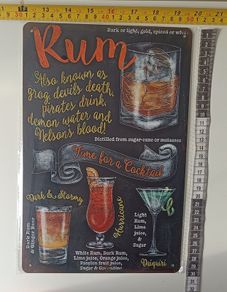 Dark or light, gold, spiced or whi
Rum
Also known as
grog, devils death,
pirates drink,
demon water and
Nelsons blood!
Distilled from sugar-cane or molasses
Time for a Cocktail
Dark & Stormy
Dark Rum
& Ginger Beer
Hurricane
White Rum, Dark Rum,
Lime juice, Orange juice,
Passion fruit puree,
Sugar & Grenadine
Light
Rum,
Lime
juice,
&
Sugar
Daiquiri